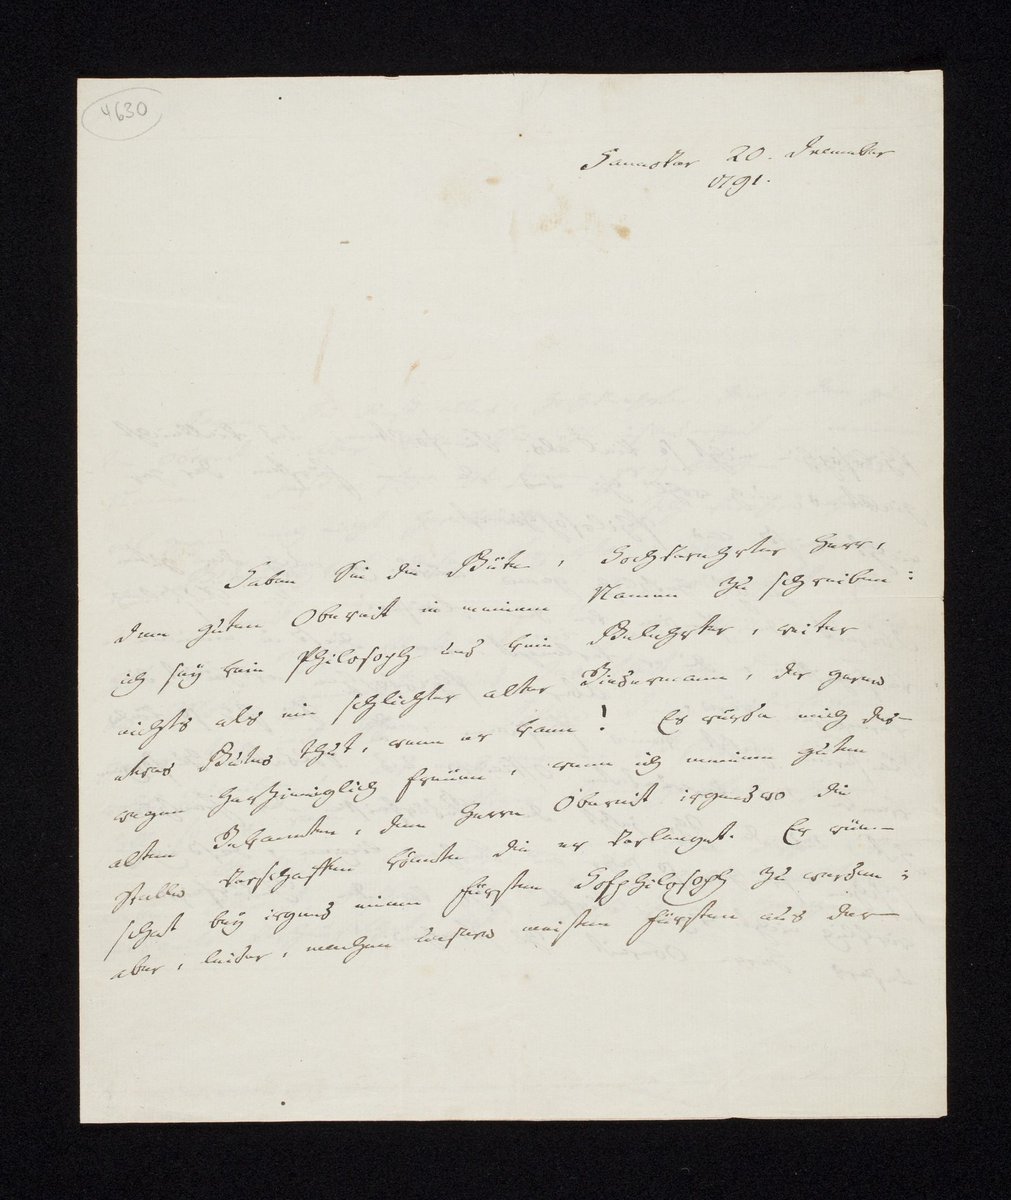 4630
Hannover 20. December
1791.
Haben Sie die Güte, Hochverehrter Herr,
dem guten Obereit in meinem Namen zu schreiben:
ich sey kein Philosoph und kein Gelehrter, weiter
nichts als ein schlichter alter Biedermann, der gerne
etwas Gutes thut, wenn er kann! Es würde mich des-
wegen herzinniglich freuen, wenn ich meinem guten
alten Bekannten, dem Herrn Obereit irgendwo die
Stelle verschaffen könnte die er verlanget. Er wün-
schet bey irgend einem Fürsten Hofphilosoph zu werden:
aber, leider, machen unsere meisten Fürsten aus der